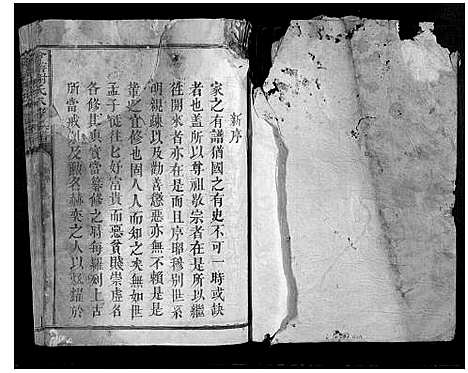 新序
家之有譜猶國之有史不可一時或缺
者也蓋所以尊祖敬宗者在是所以繼
徃開來者亦在是而且序昭穆別世系
明親疎以及勸善懲惡亦無不賴是是
譜宜修也固人人而知之矣無如世
孟子徃徃匕好富貴而惡貧賤崇虛名
各修其典實當纂修之時每羅列上古
所當戒以及勳名赫奕之人以炫耀於